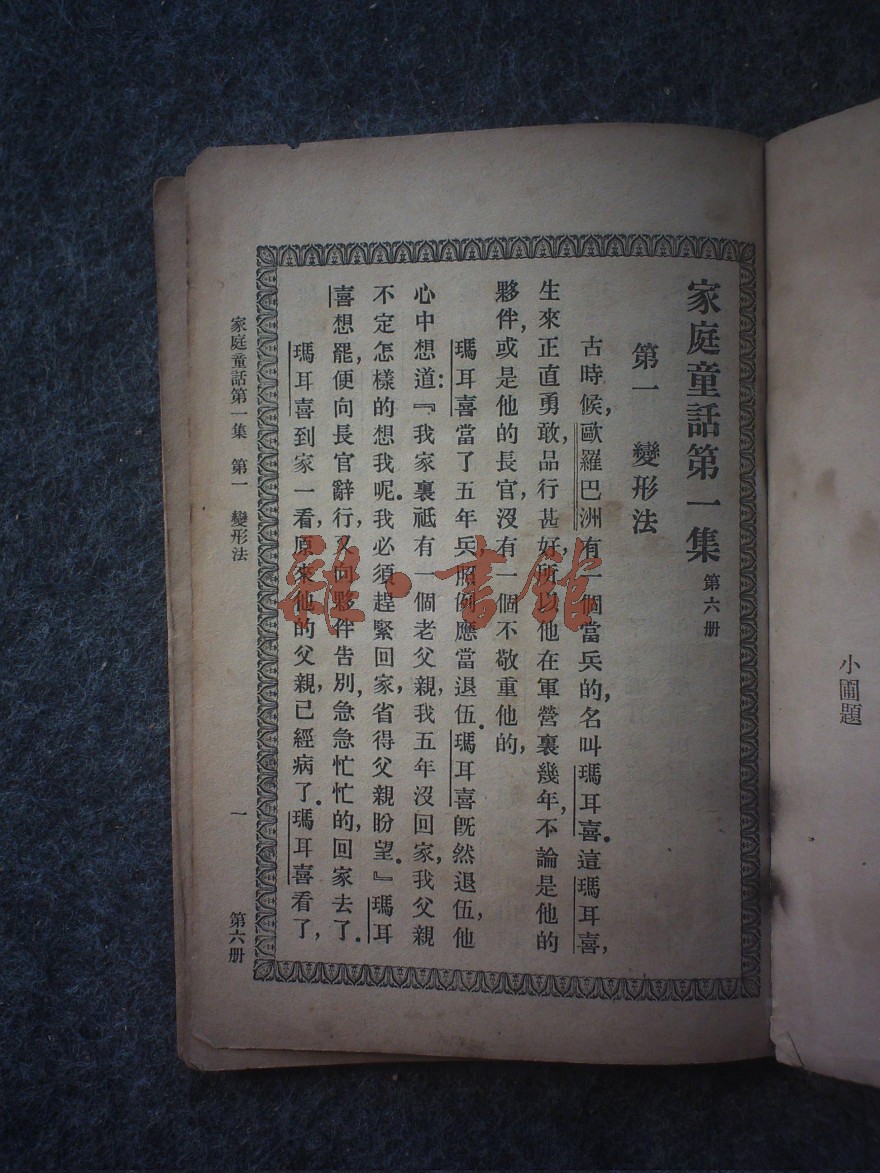 小圃題
家庭童話第一集 第六册
第一 變形法
古時候，歐羅巴洲有一個當兵的，名叫瑪耳喜。這瑪耳喜，
生來正直勇敢，品行甚好，所以他在軍營裏幾年，不論是他的
夥伴，或是他的長官，沒有一個不敬重他的，
瑪耳喜當了五年兵，照例應當退伍。瑪耳喜旣然退伍，他
心中想道：『我家裏祇有一個老父親，我五年沒回家，我父親
不定怎樣的想我呢。我必須趕緊回家，省得父親盼望。』瑪耳
喜想罷，便向長官辭行，又向夥伴告別，急急忙忙的，回家去了。
瑪耳喜到家一看，原來他的父親，已經病了。瑪耳喜看了，
家庭童話第一集 第一 變形法 一 第六册
雜·書館